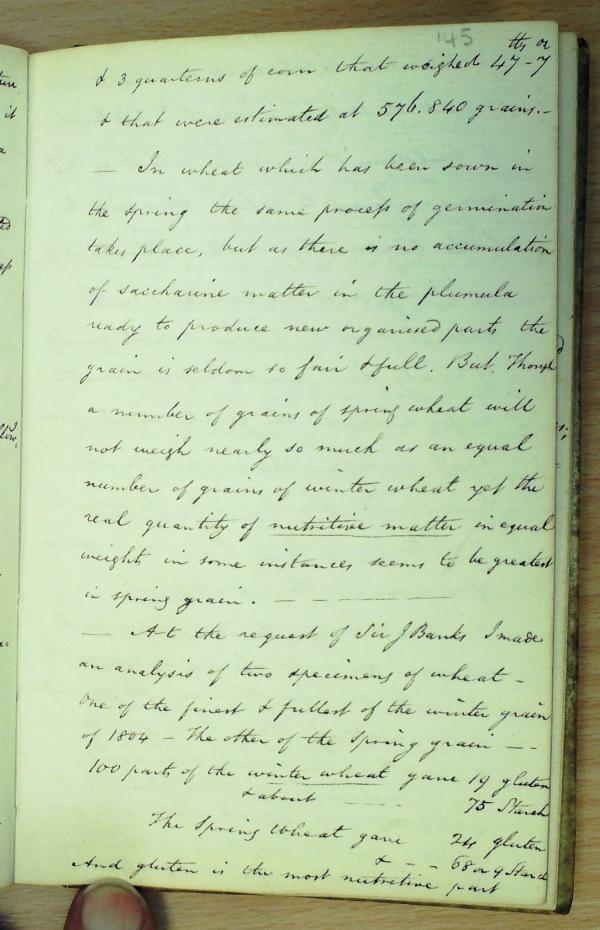 145
lbs oz
& 3 quarterns of corn that weighed 47-7
& that were estimated at 576.840 grains.-
— In wheat which has been sown in
the spring the same process of germination
takes place, but as there is no accumulation
of saccharine matter in the plumula
ready to produce new organised parts the
grain is seldom so fair & full. But, Though
a number of grains of spring wheat will
not weigh nearly so much as an equal
number of grains of winter wheat yet the
real quantity of nutritive matter in equal
weights in some instances seems to be greatest
in spring grain. — — —
— At the request of Sir J Banks I made
an analysis of two specimens of wheat -
One of the finest & fullest of the winter grain
of 1804 - The other of the Spring grain - -
100 parts of the winter wheat gave 19 gluten
& about 75 Starch
The Spring Wheat gave 24 gluten
& - - 68 or 9 Starch
And gluten is the most nutritive part